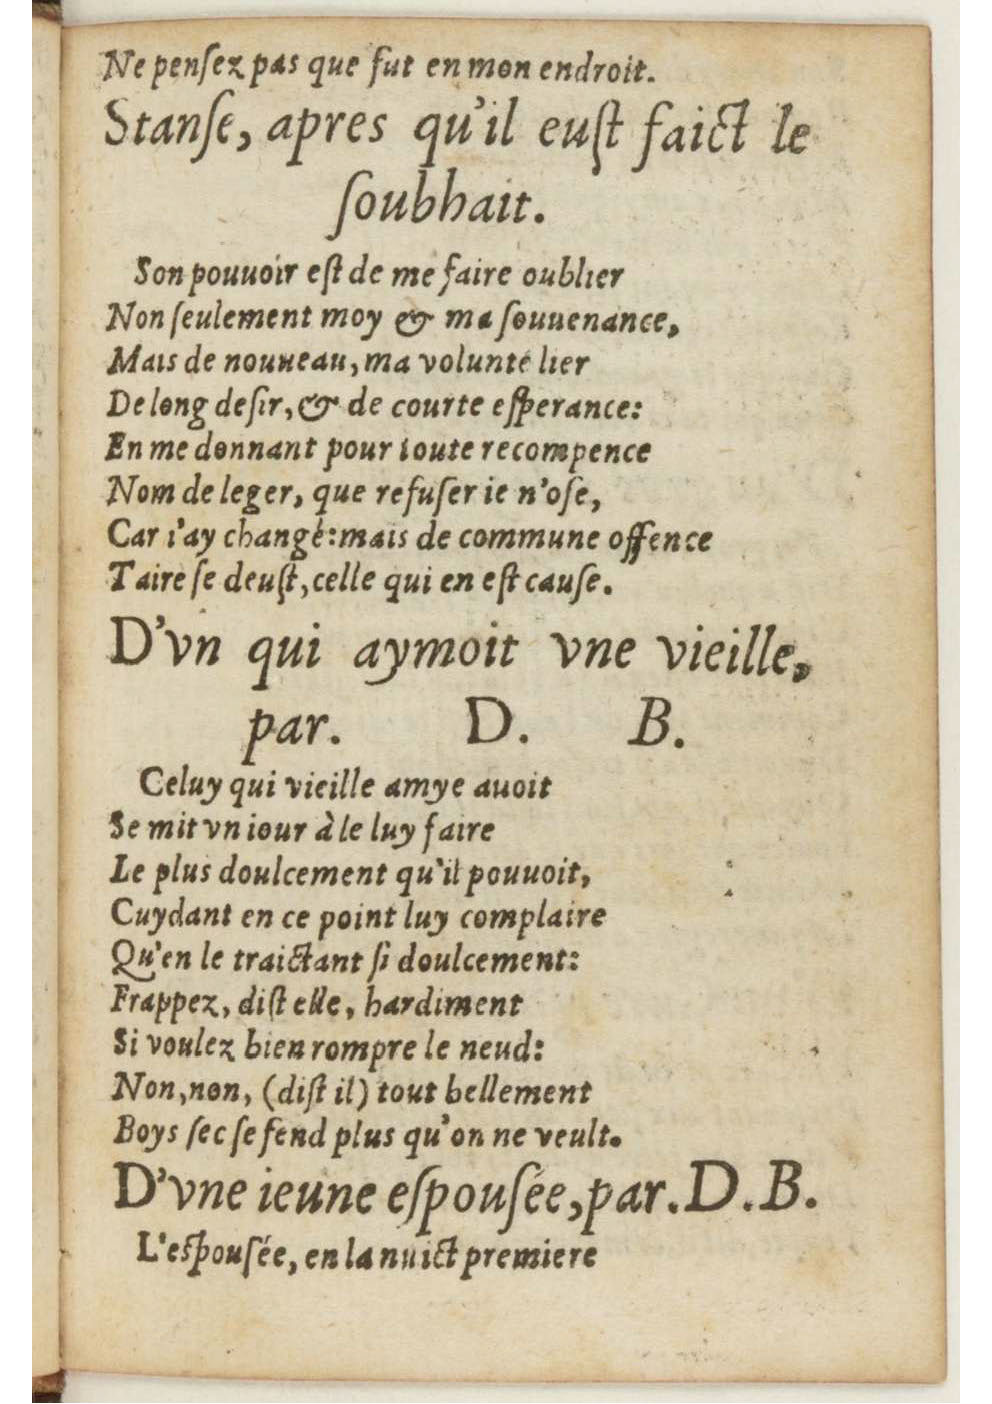 Ne penſez pas que fut en mon endroit.
Stanſe, apres qu'il euſt faict le
ſoubhait.
Son pouuoir eſt de me faire oublier
Non ſeulement moy & ma ſouuenance,
Mais de nouueau, ma volunté lier
De long deſir, & de courte eſperance:
En me donnant pour toute recompence
Nom de leger, que refuſer ie n'oſe,
Car i'ay changé: mais de commune offence
Taire ſe deuſt, celle qui en eſt cauſe.
D'vn qui aymoit vne vieille,
par. D. B.
Celuy qui vieille amye auoit
Se mit vn iour à le luy faire
Le plus doulcement qu'il pouuoit,
Cuydant en ce point luy complaire
Qu'en le traictant ſi doulcement:
Frappez, diſt elle, hardiment
Si voulez bien rompre le neud:
Non, non, (diſt il) tout bellement
Boys ſec ſe fend plus qu'on ne veult.
D'vne ieune eſpouſée, par. D. B.
L'eſpouſée, en la nuict premiere